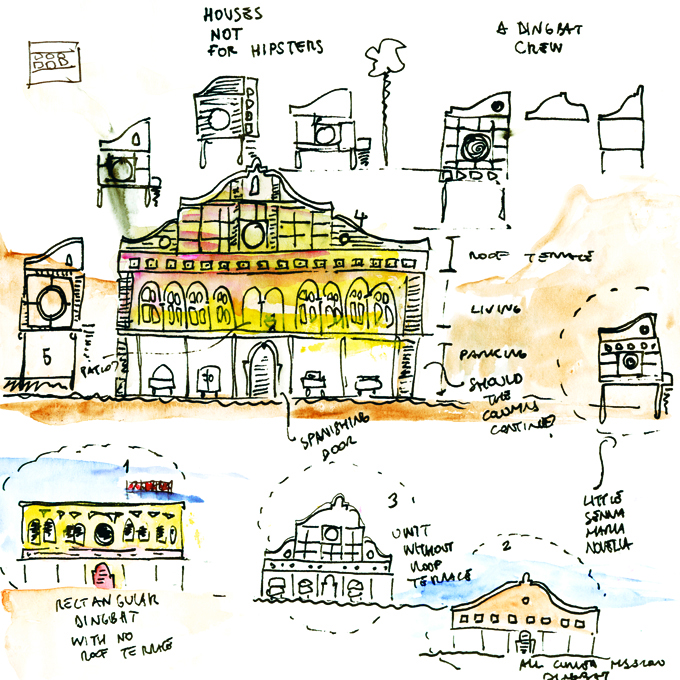 HOUSES
NOT
FOR HIPSTERS
A DINGBAT
CREW
4
ROOF TERRACE
LIVING
PARKING
SHOULD
THE
COLUMNS
CONTINUE?
5
SPANISHING
DOOR
LITTLE
MARIA
NOVELLA
1
RECTANGULAR
DINGBAT
WITH NO
ROOF TERRACE
3
UNIT
WITHOUT
ROOF
TERRACE
2
DINGBAT